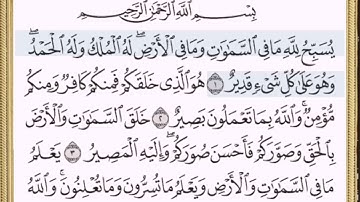 بِسْمِ ٱللَّهِ ٱلرَّحْمَٰنِ ٱلرَّحِيمِ
يُسَبِّحُ لِلَّهِ مَا فِي ٱلسَّمَٰوَٰتِ وَمَا فِي ٱلْأَرْضِ ۖ لَهُ ٱلْمُلْكُ وَلَهُ ٱلْحَمْدُ ۖ
وَهُوَ عَلَىٰ كُلِّ شَيْءٍ قَدِيرٌ ١ هُوَ ٱلَّذِي خَلَقَكُمْ فَمِنكُمْ كَافِرٌ وَمِنكُم
مُّؤْمِنٌ ۚ وَٱللَّهُ بِمَا تَعْمَلُونَ بَصِيرٌ ٢ خَلَقَ ٱلسَّمَٰوَٰتِ وَٱلْأَرْضَ
بِٱلْحَقِّ وَصَوَّرَكُمْ فَأَحْسَنَ صُوَرَكُمْ ۖ وَإِلَيْهِ ٱلْمَصِيرُ ٣ يَعْلَمُ
مَا فِي ٱلسَّمَٰوَٰتِ وَٱلْأَرْضِ وَيَعْلَمُ مَا تُسِرُّونَ وَمَا تُعْلِنُونَ ۚ وَٱللَّهُ